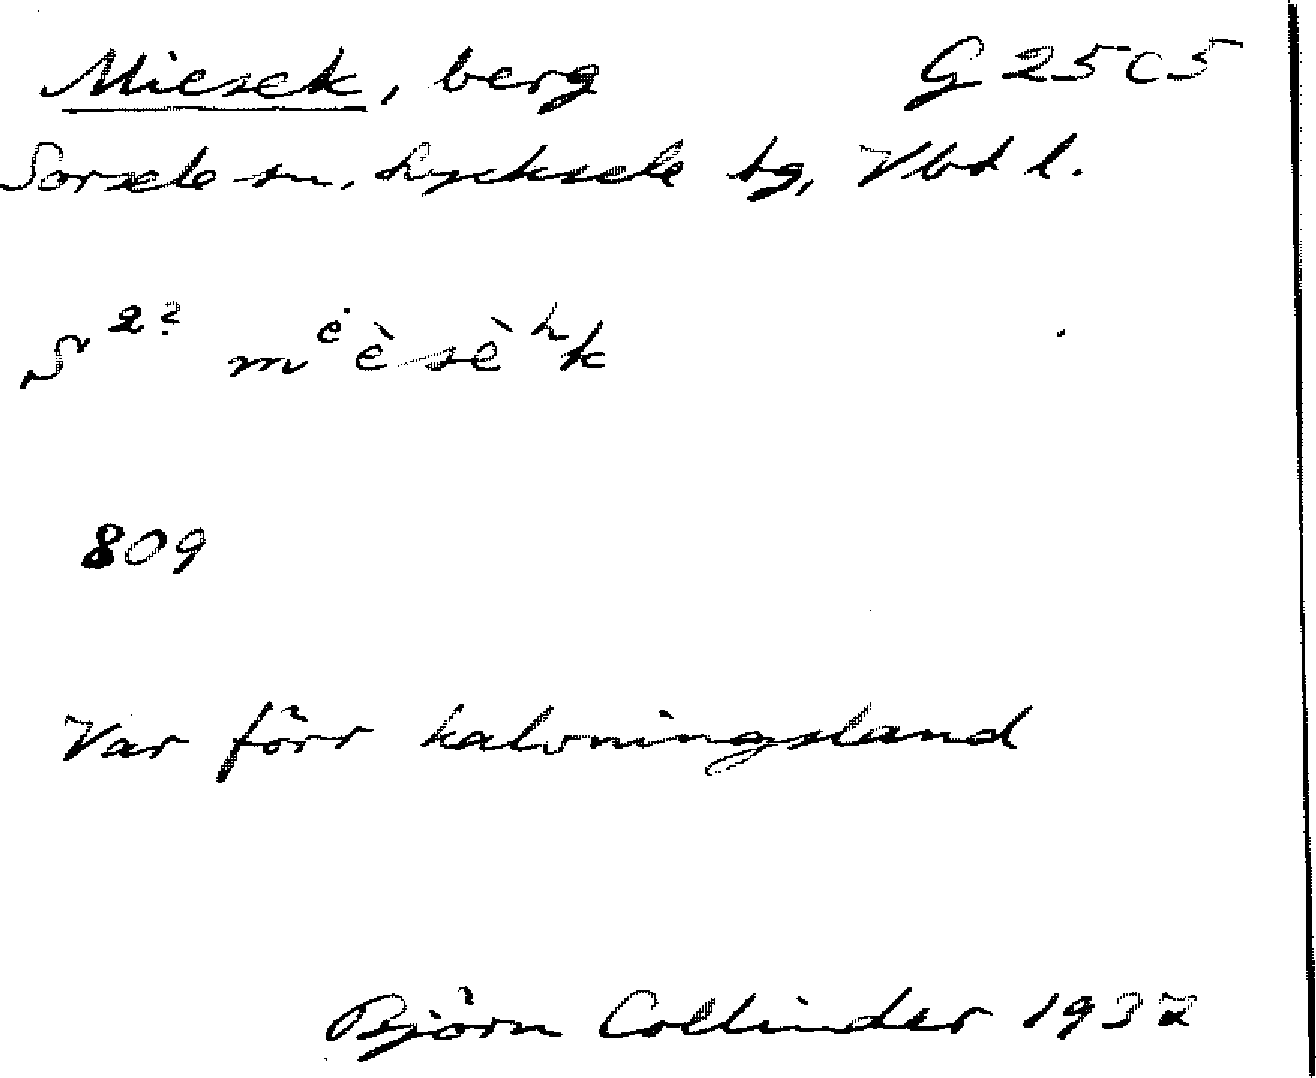 Miesek, berg G 25 C 5
Sorsele sn, Lycksele tg, Vbd l.
S 2? mėèsèhk
809
Var förr kalvningsland
Björn Collinder 1932